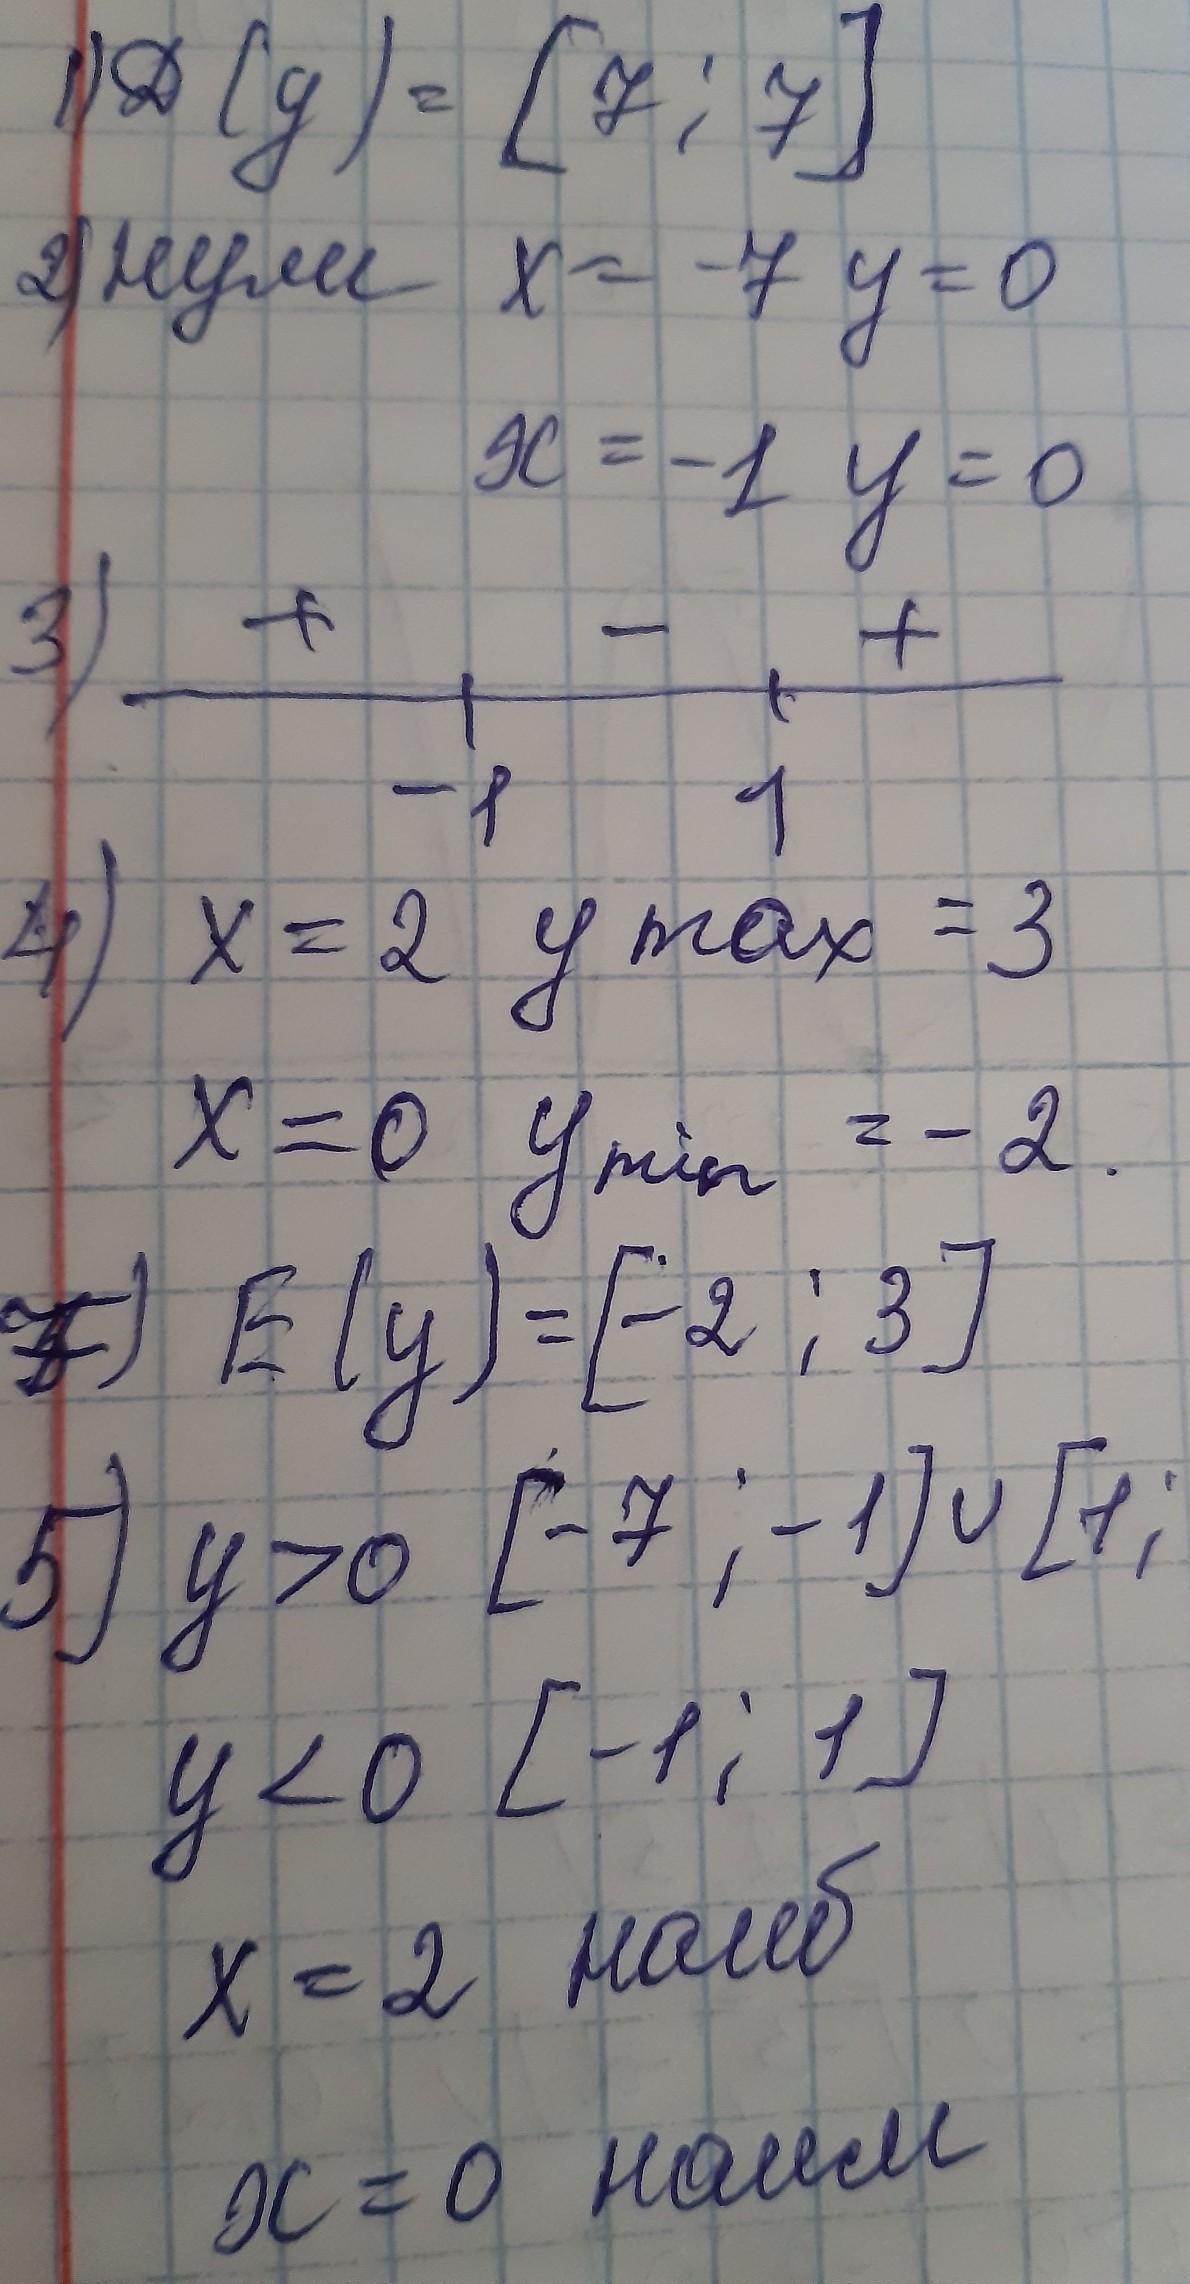 1) D(y) = [7; 7]
2) нули x = -7 y = 0
x = -1 y = 0
3) + - +
-1 1
4) x = 2 y max = 3
x = 0 y min = -2.
E(y) = [-2; 3]
5) y > 0 [-7; -1] ∪ [1;
y < 0 [-1; 1]
x = 2 наиб
x = 0 наим